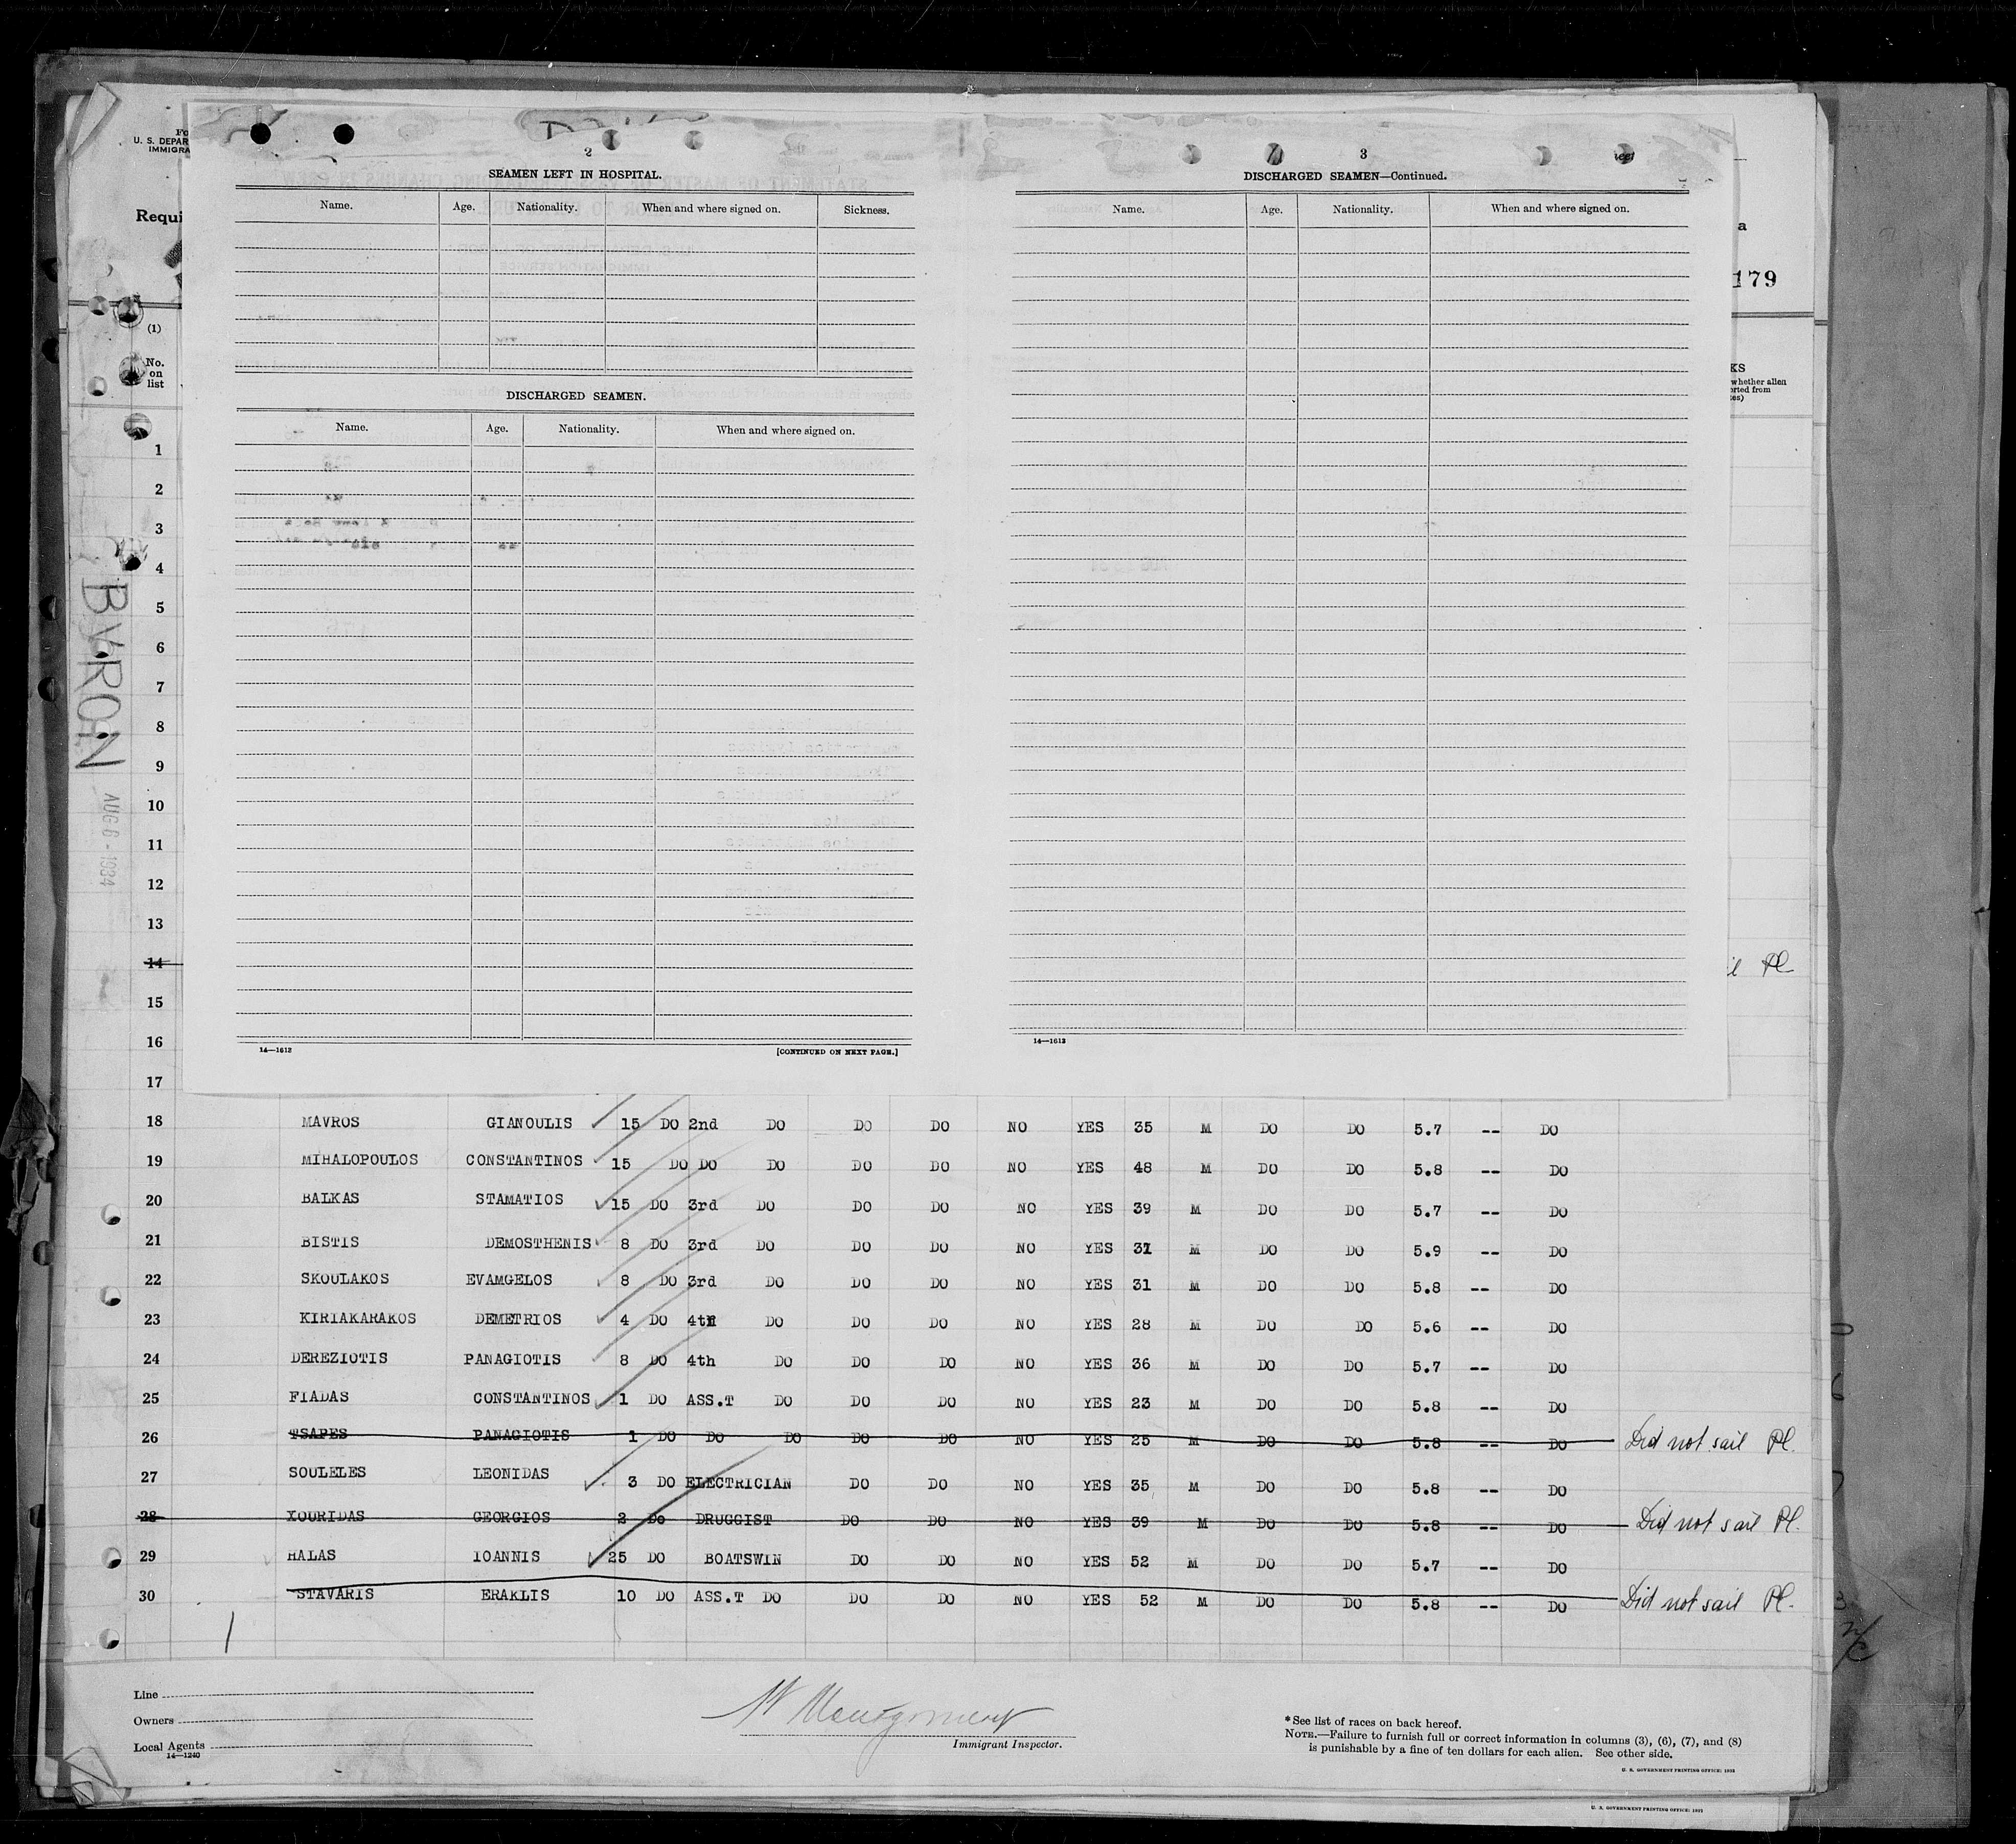 U. S. DEPAR
IMMIGRA
Requi
(1)
No.
on
list
BYRON
AUG 6 - 1934
2
SEAMEN LEFT IN HOSPITAL.
Name. Age. Nationality. When and where signed on. Sickness.
DISCHARGED SEAMEN.
Name. Age. Nationality. When and where signed on.
14—1612 [CONTINUED ON NEXT PAGE.]
3
DISCHARGED SEAMEN—Continued.
Name. Age. Nationality. When and where signed on.
14—1612
a
179
KS
whether alien
orted from
es)
1
2
3
4
5
6
7
8
9
10
11
12
13
14 Pl
15
16
17
18 MAVROS GIANOULIS 15 DO 2nd DO DO DO NO YES 35 M DO DO 5.7 -- DO
19 MIHALOPOULOS CONSTANTINOS 15 DO DO DO DO DO NO YES 48 M DO DO 5.8 -- DO
20 BALKAS STAMATIOS 15 DO 3rd DO DO DO NO YES 39 M DO DO 5.7 -- DO
21 BISTIS DEMOSTHENIS 8 DO 3rd DO DO DO NO YES 31 M DO DO 5.9 -- DO
22 SKOULAKOS EVAMGELOS 8 DO 3rd DO DO DO NO YES 31 M DO DO 5.8 -- DO
23 KIRIAKARAKOS DEMETRIOS 4 DO 4th DO DO DO NO YES 28 M DO DO 5.6 -- DO
24 DEREZIOTIS PANAGIOTIS 8 DO 4th DO DO DO NO YES 36 M DO DO 5.7 -- DO
25 FIADAS CONSTANTINOS 1 DO ASS.T DO DO DO NO YES 23 M DO DO 5.8 -- DO
26 TSAPES PANAGIOTIS 1 DO DO DO DO DO NO YES 25 M DO DO 5.8 -- DO Did not sail Pl.
27 SOULELES LEONIDAS 3 DO ELECTRICIAN DO DO NO YES 35 M DO DO 5.8 -- DO
28 XOURIDAS GEORGIOS 2 Do DRUGGIST DO DO NO YES 39 M DO DO 5.8 -- DO Did not sail Pl.
29 HALAS IOANNIS 25 DO BOATSWIN DO DO NO YES 52 M DO DO 5.7 -- DO
30 STAVARIS ERAKLIS 10 DO ASS.T DO DO DO NO YES 52 M DO DO 5.8 -- DO Did not sail Pl.
Line
Owners
Local Agents
14—1240
Montgomery
Immigrant Inspector.
* See list of races on back hereof.
NOTE.—Failure to furnish full or correct information in columns (3), (6), (7), and (8)
is punishable by a fine of ten dollars for each alien. See other side.
U. S. GOVERNMENT PRINTING OFFICE: 1932
U. S. GOVERNMENT PRINTING OFFICE: 1931